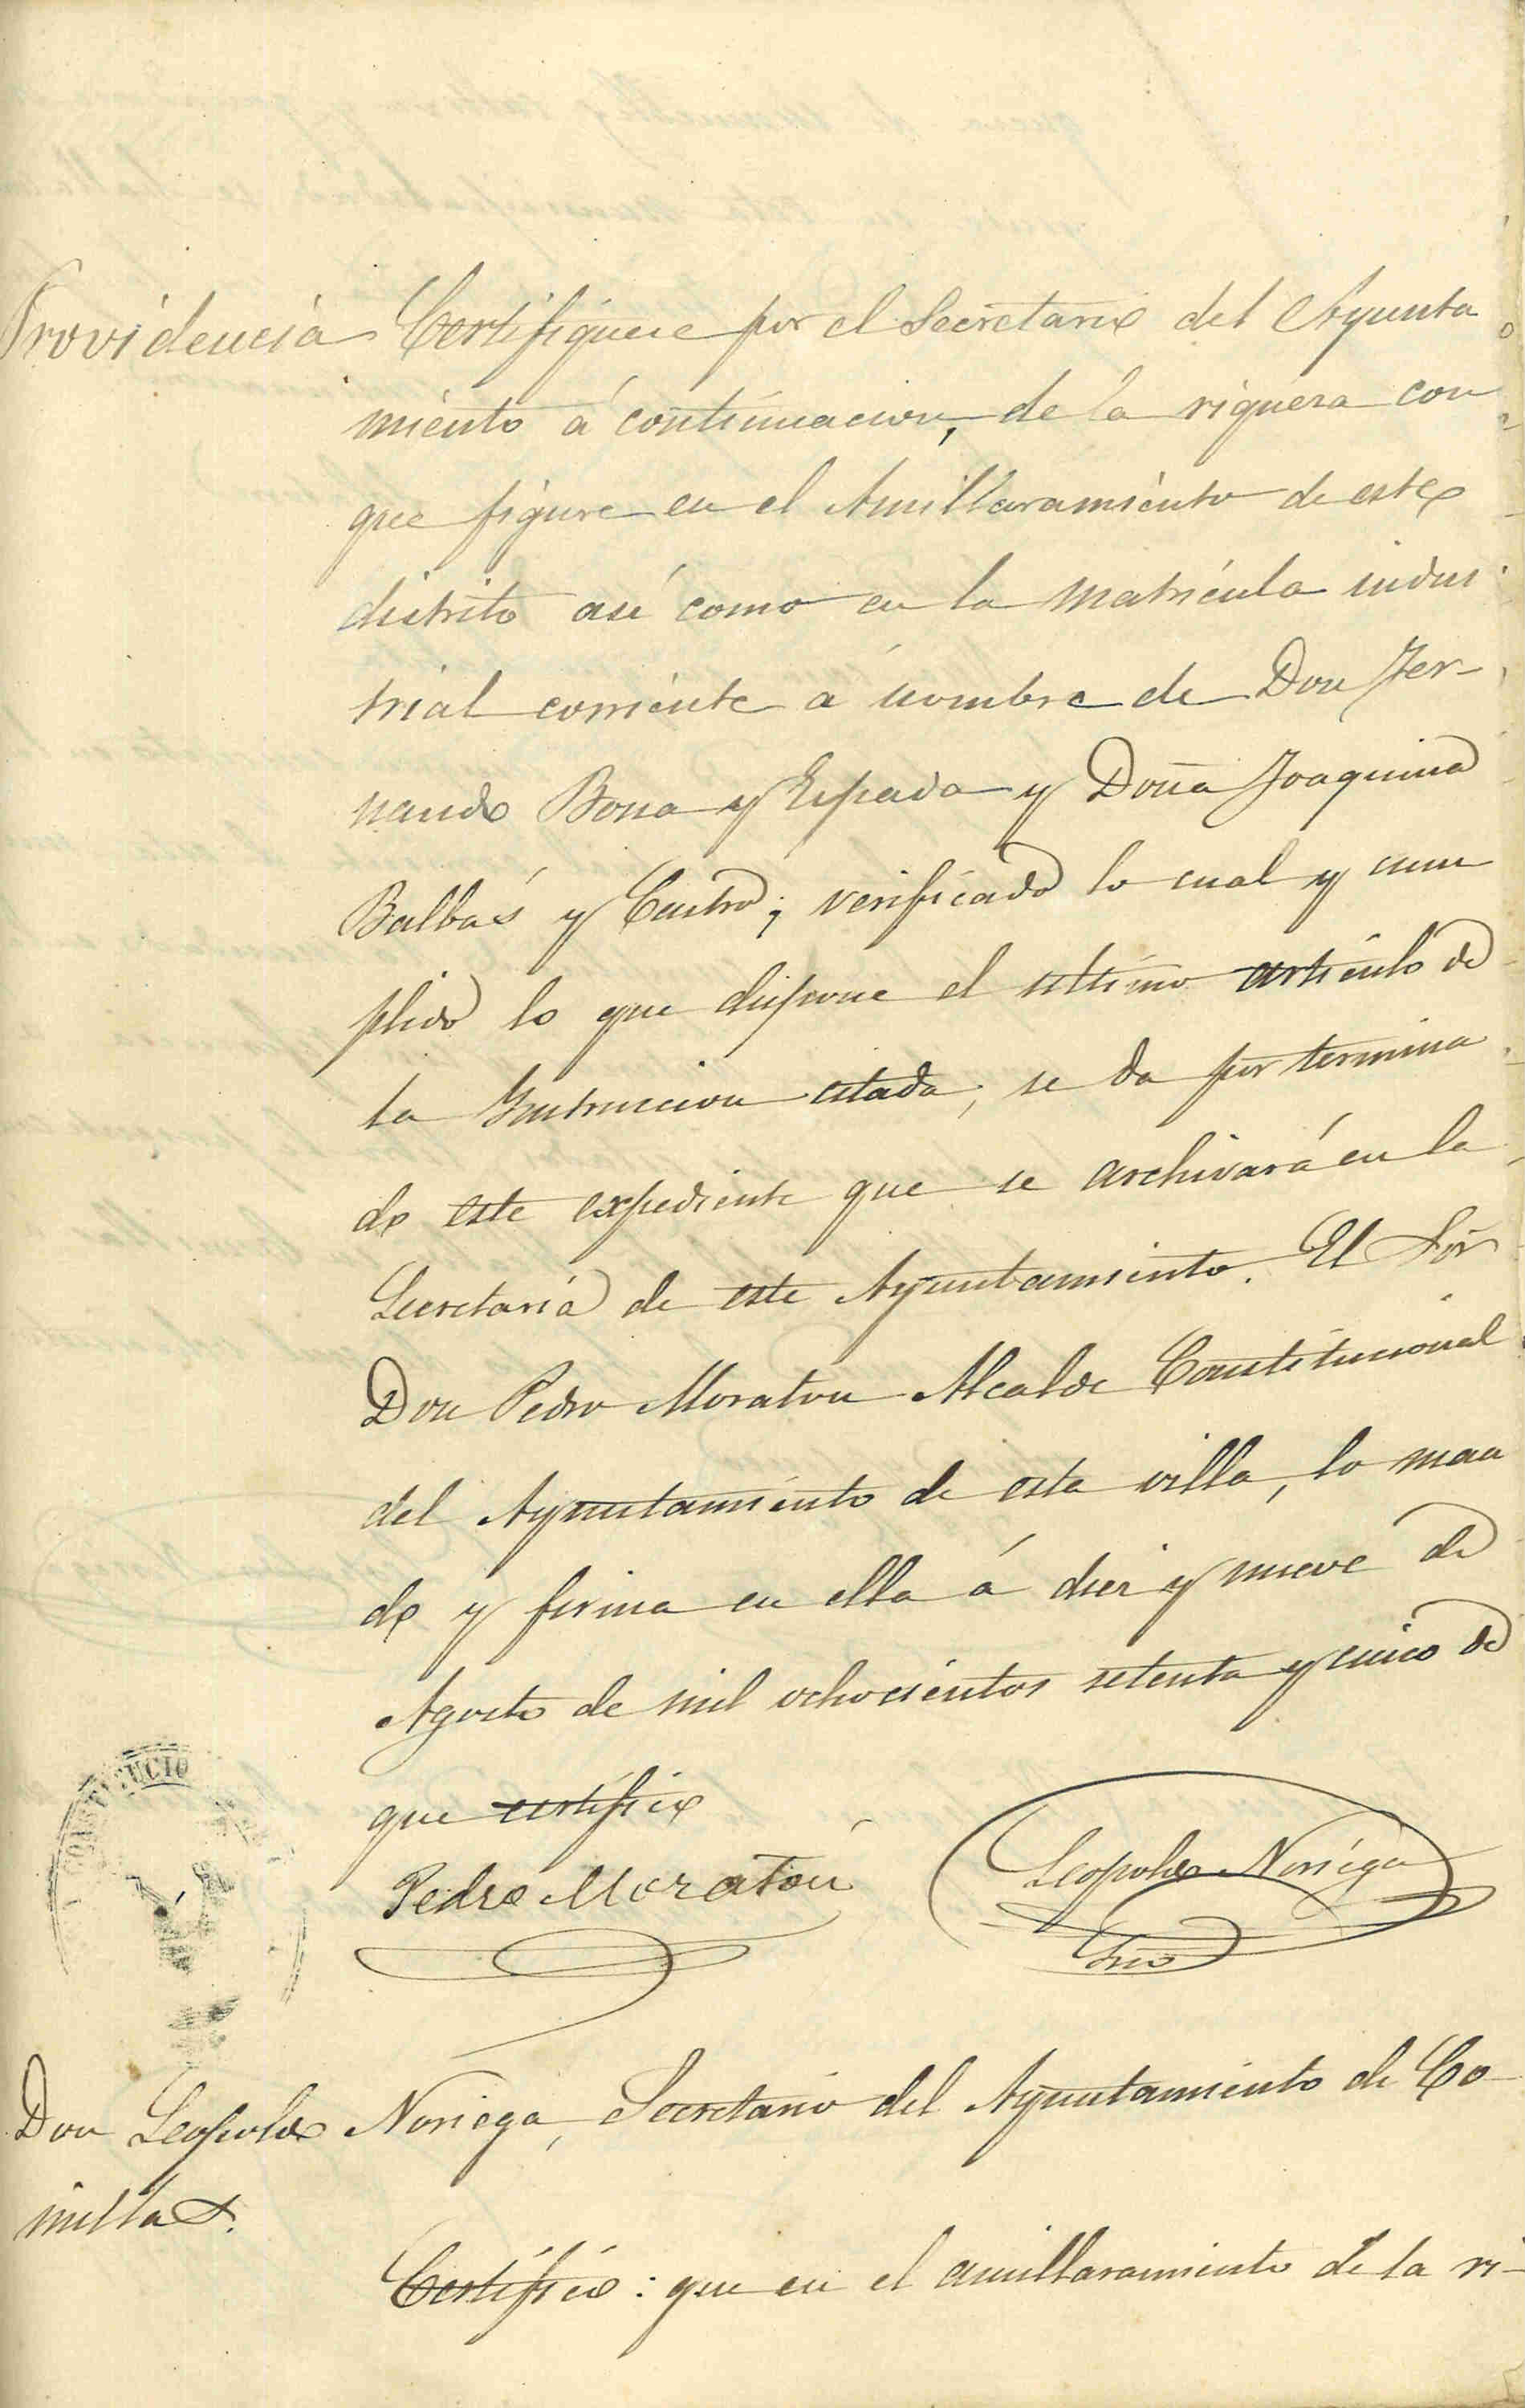 Providencia Certifiquese por el Secretario del Ayunta
miento á continuacion, de la riqueza con
que figure en el Amillaramiento de este
distrito asi como en la matricula indus
trial corriente a nombre de Don Fer-
nando Bona y Espada y Doña Joaquina
Balbás y Castro; verificado lo cual y cum
plido lo que dispone el ultimo articulo de
la Instruccion citada, se da por termina
do este expediente que se archivará en la
Secretaría de este Ayuntamiento. El Sõr
Don Pedro Moraton Alcalde Constitucional
del Ayuntamiento de esta villa, lo man
do y firma en ella á diez y nueve de
Agosto de mil ochocientos setenta y cinco de
que certifico
CONSTITUCIO
Pedro Moraton Leopoldo Noriega
Srio
Don Leopoldo Noriega, Secretario del Ayuntamiento de Co-
millas.
Certifico: que en el amillaramiento de la ri-